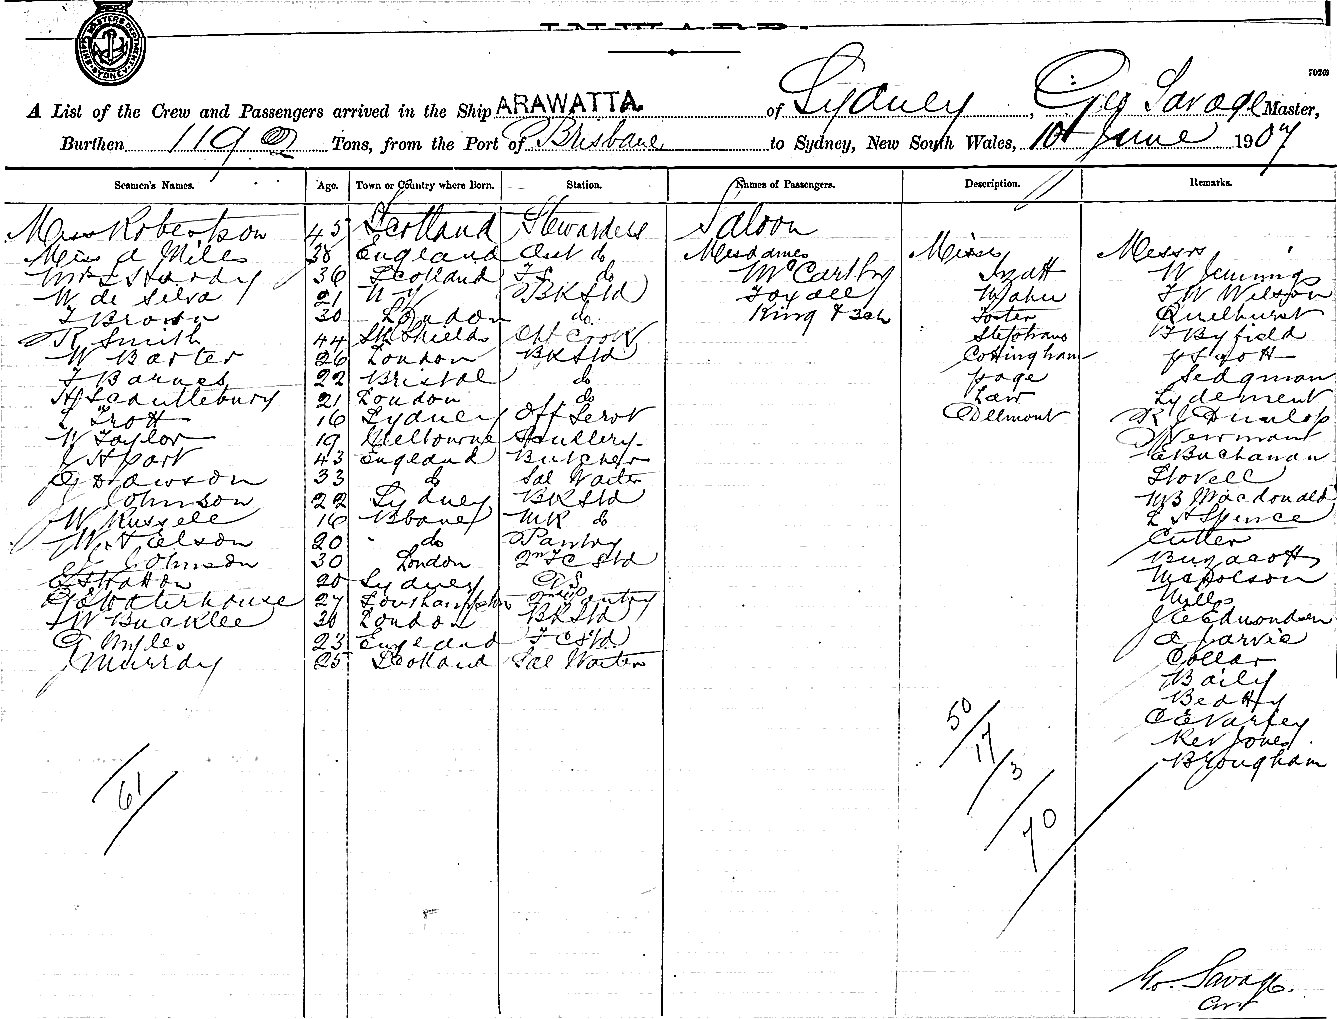 INWARD.
A List of the Crew and Passengers arrived in the Ship ARAWATTA of Sydney, Geo Savage Master,
Burthen 1190 Tons, from the Port of Brisbane to Sydney, New South Wales, 10th June 1907
Seamen's Names. Age. Town or Country where Born. Station. Names of Passengers. Description. Remarks.
Miss Robertson 45 Scotland Stewardess Saloon
Miss A Miles 38 England Asst do Mesdames Misses Messrs
Mrs S Hardy 36 Scotland do McCarthy W Jennings
W de Silva 21 N Y BK Std Foxall Maher F W Wilson
F Brown 30 London do King & 3 ch Foster Quelhurst
R Smith 44 Sth Shields Ch Cook Stephens F Byfield
W Barter 26 London BK Std Cottingham
F Barnes 22 Bristol do Page Sedgman
H Scauttlebury 21 London do Law Lydement
L Trott 16 Sydney Off Servt Dellmont R J Dunlop
W Taylor 19 Melbourne Scullery Newman
J Hpart 43 England Butcher Buchanan
G Dawson 33 do Sal Waiter Lovell
J Johnson 22 Sydney BK Std Macdonald
W Russell 16 Bbane MR do L H Spence
W Nelson 20 do Pantry Cutter
J Johnson 30 London 2nd C Std Buzacott
E Stratton 20 Sydney GS
G E Waterhouse 27 Southampton 2nd Pantry Mills
W Bucklee 30 London BK Std J C Edmondson
G Myles 23 England F C Std A Jarvie
J Murray 25 Scotland Sal Waiter Collar
Baily
Beatty
C E Varley
Rev Jones
Brougham
50
17
3
70
61
Geo. Savage.